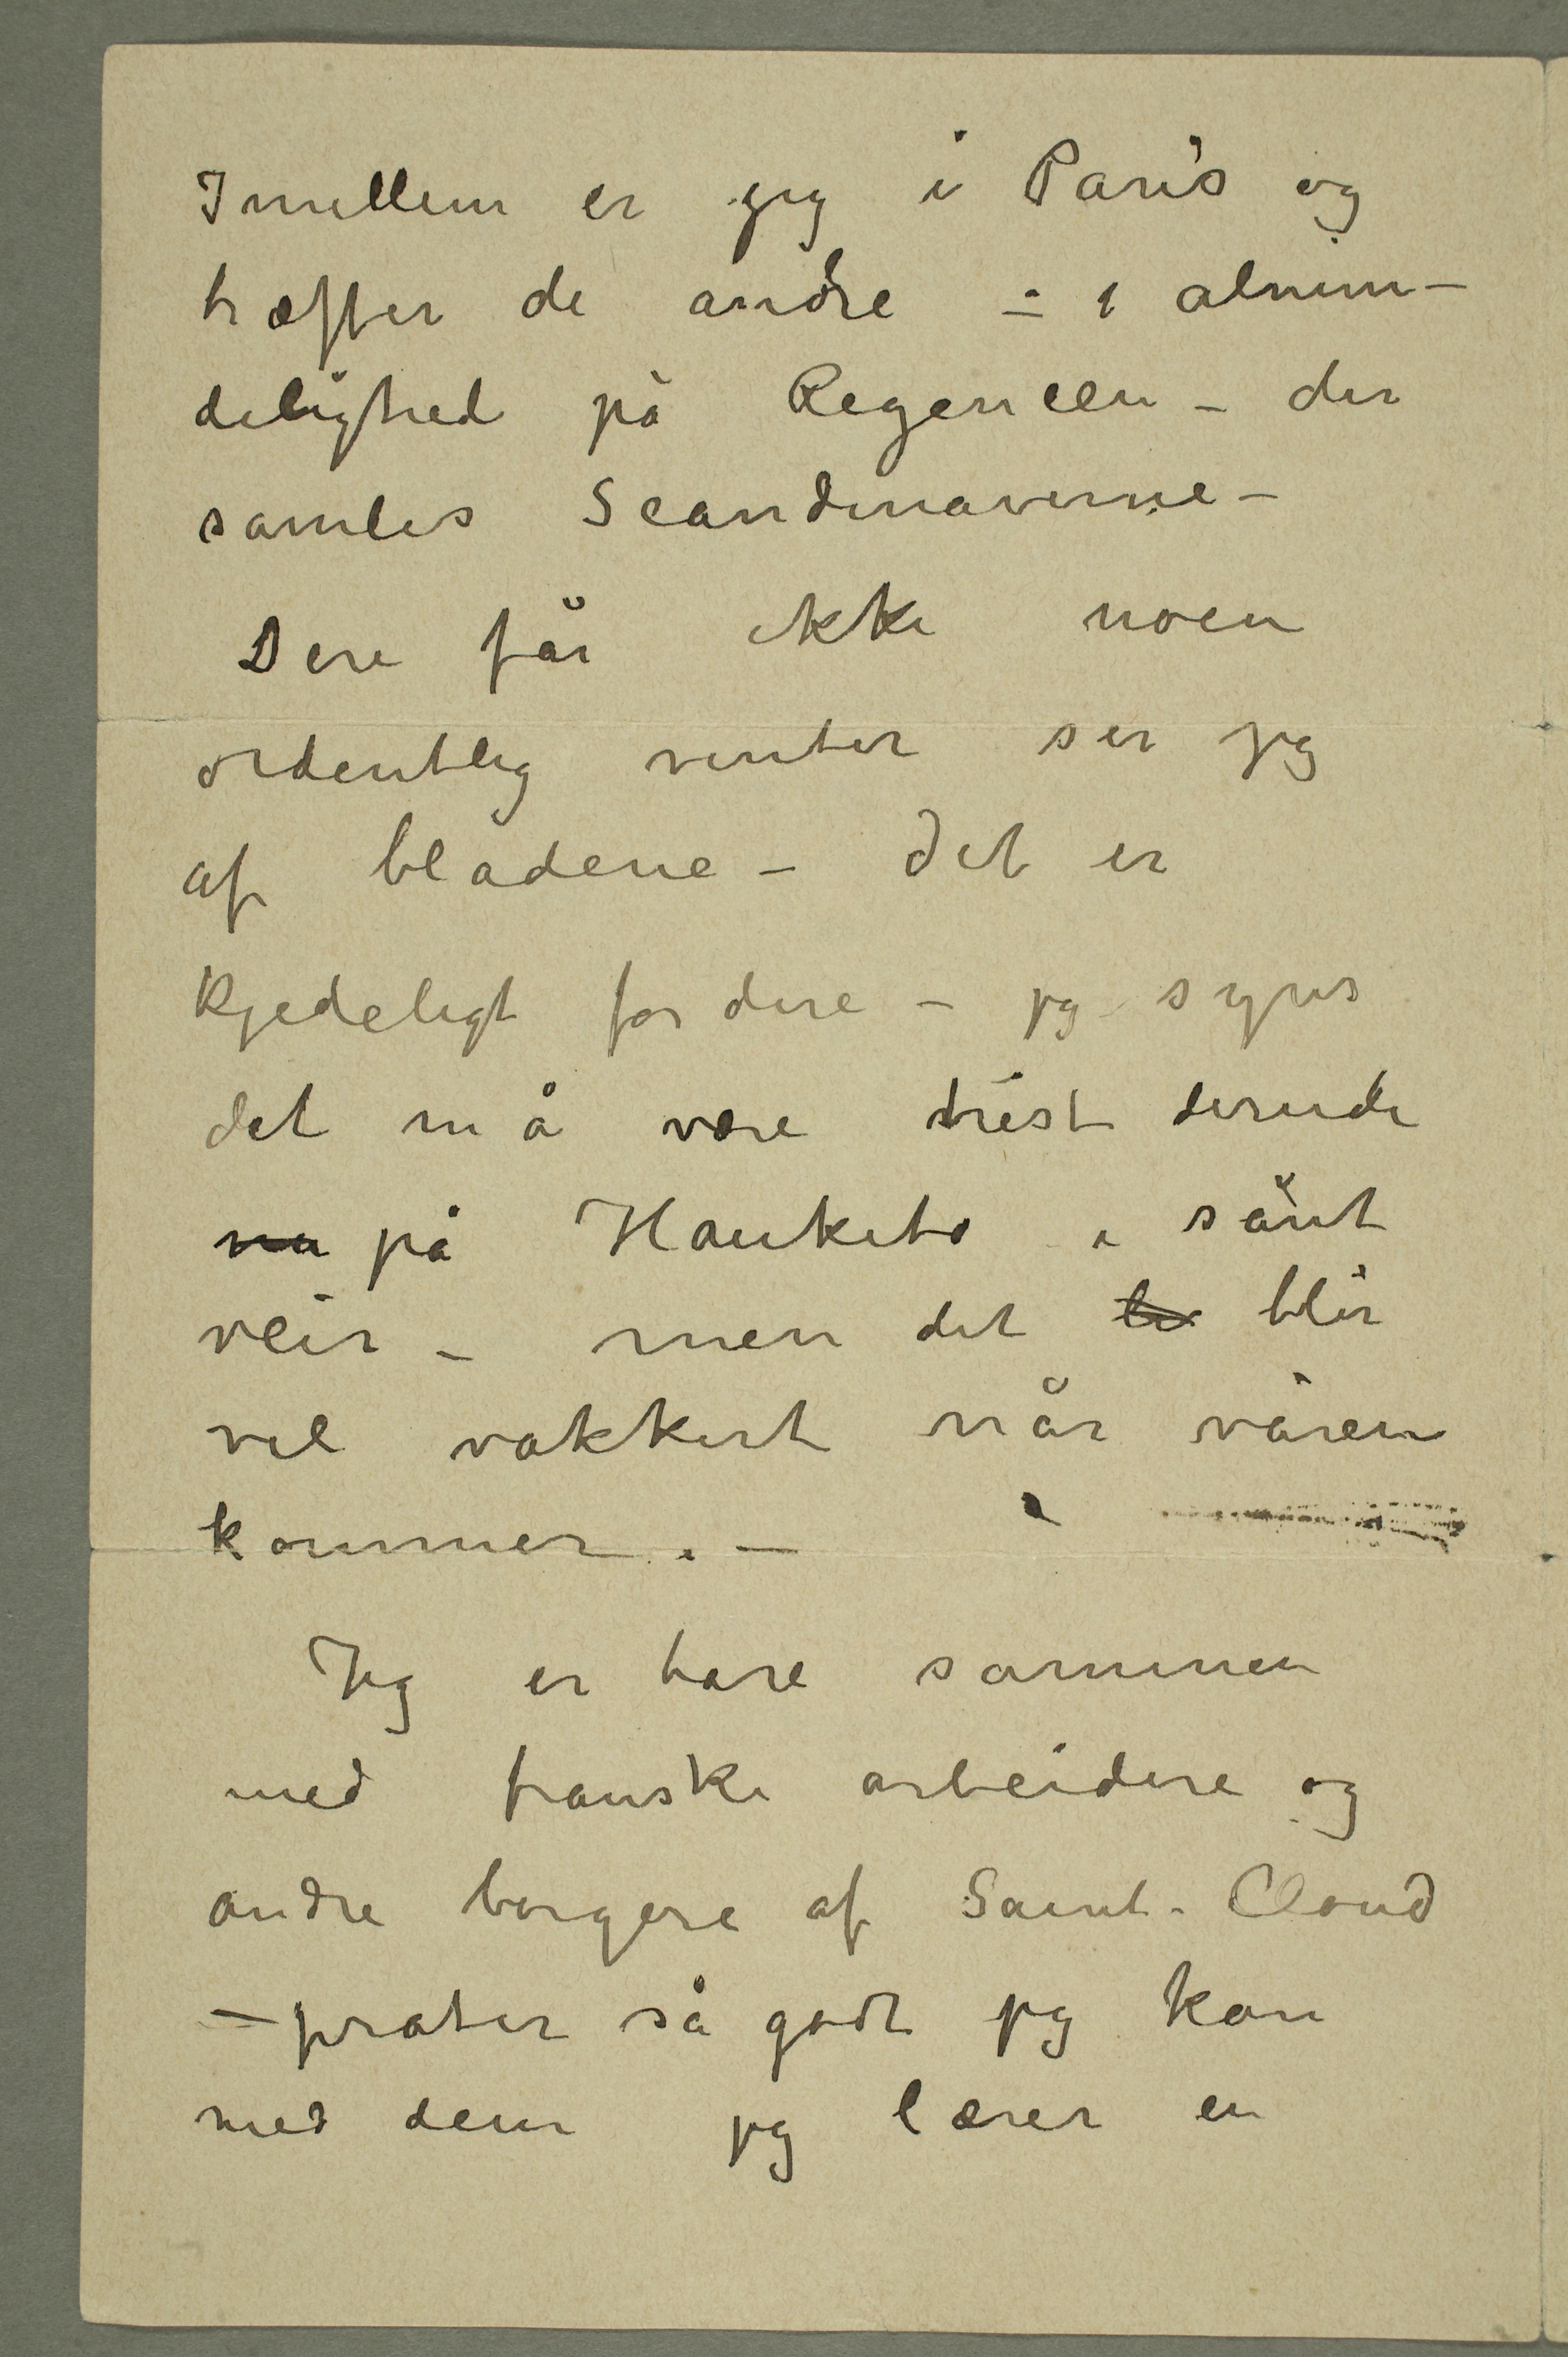 Imellem er jeg i Paris og
træffer de andre – i almin-
delighed på Regencen – der
samles Scandinaverne –
Dere får ikke noen
ordentlig vinter ser jeg
af bladene – Det er
kjedeligt for dere – jeg synes
det må være trist derude
på Hauketo i sånt
veir – men det blir
vel vakkert når våren
kommer. –
Jeg er bare sammen
med franske arbeidere og
andre borgere af Saint-Cloud
– prater så godt jeg kan
med dem jeg lærer en